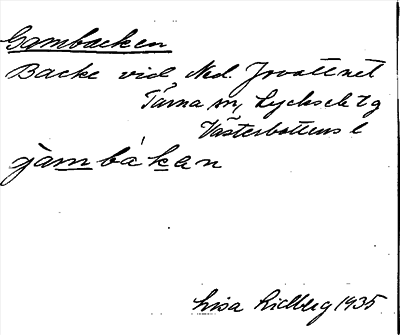 Gambacken
Backe vid Ned. Jovattnet
Tärna sn, Lycksele tg
Västerbottens l
gàmbákan
Lisa Lidberg 1935